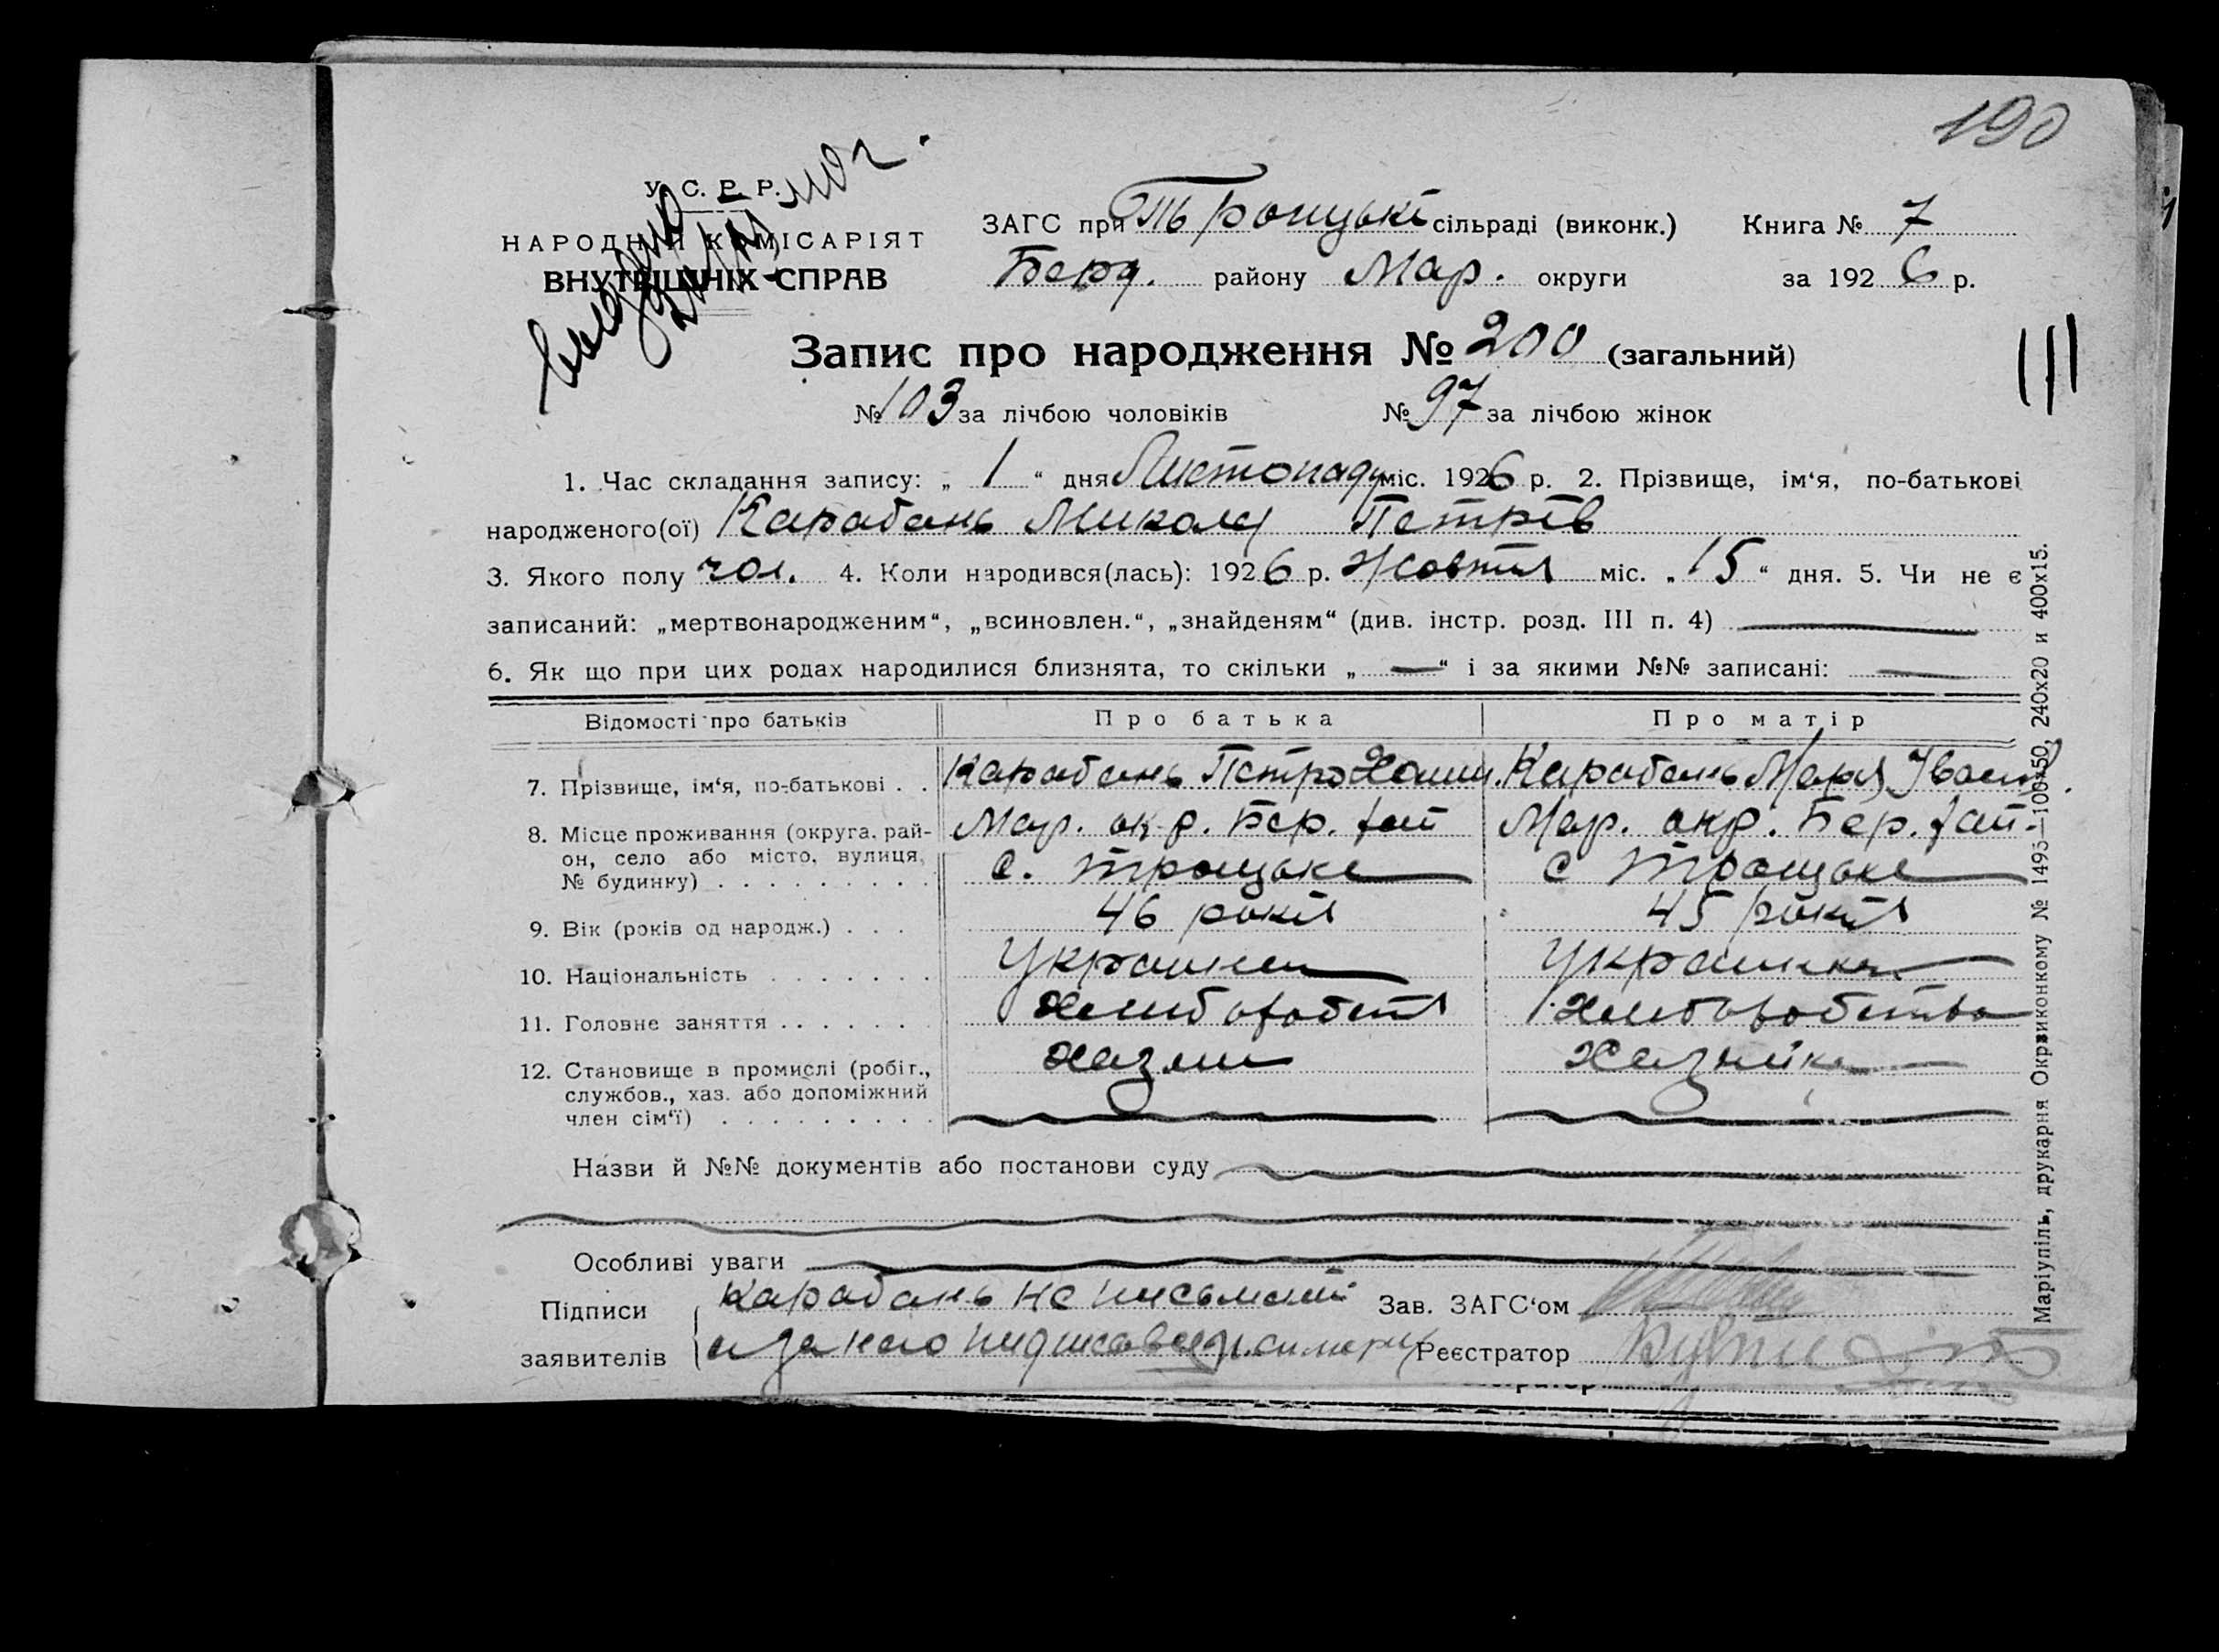 190
У. С. Р. Р.
НАРОДНІЙ КОМІСАРІЯТ
ВНУТРІШНІХ СПРАВ
ЗАГС при Троцькі сільраді (виконк.) Книга № 7
Берд. району Мар. округи за 1926 р.
Запис про народження № 200 (загальний)
№ 103 за лічбою чоловіків № 97 за лічбою жінок
1. Час складання запису: „ 1 “ дня Листопаду міс. 1926 р. 2. Прізвище, ім‘я, по-батькові
народженого(ої) Карабань Микола Петрів
3. Якого полу чол. 4. Коли народився(лась): 1926 р. Жовтня міс. „ 15 “ дня. 5. Чи не є
записаний: „мертвонародженим“, „всиновлен.“, „знайденям“ (див. інстр. розд. III п. 4)
6. Як що при цих родах народилися близнята, то скільки „ — “ і за якими №№ записані: —
Відомості про батьків Про батька Про матір
7. Прізвище, ім‘я, по-батькові . . Карабань Петро Карабань Мария
8. Місце проживання (округа, рай- Мар. окр. Бер. Мар. окр. Бер.
он, село або місто, вулиця,
№ будинку) . . . . . . . . . с. Троцьке с Троцьке
9. Вік (років од народж.) . . . 46 років 45 років
10. Національність . . . . . . .
11. Головне заняття . . . . . . .
12. Становище в промислі (робіт.,
службов., хаз. або допоміжний
член сім‘ї) . . . . . . . . .
Назви й №№ документів або постанови суду
Особливі уваги
Підписи Карабань не Зав. ЗАГС‘ом
заявителів а за него Реєстратор
Маріупіль, друкарня Окрвиконкому № 1495—100х50, 240х20 и 400х15.